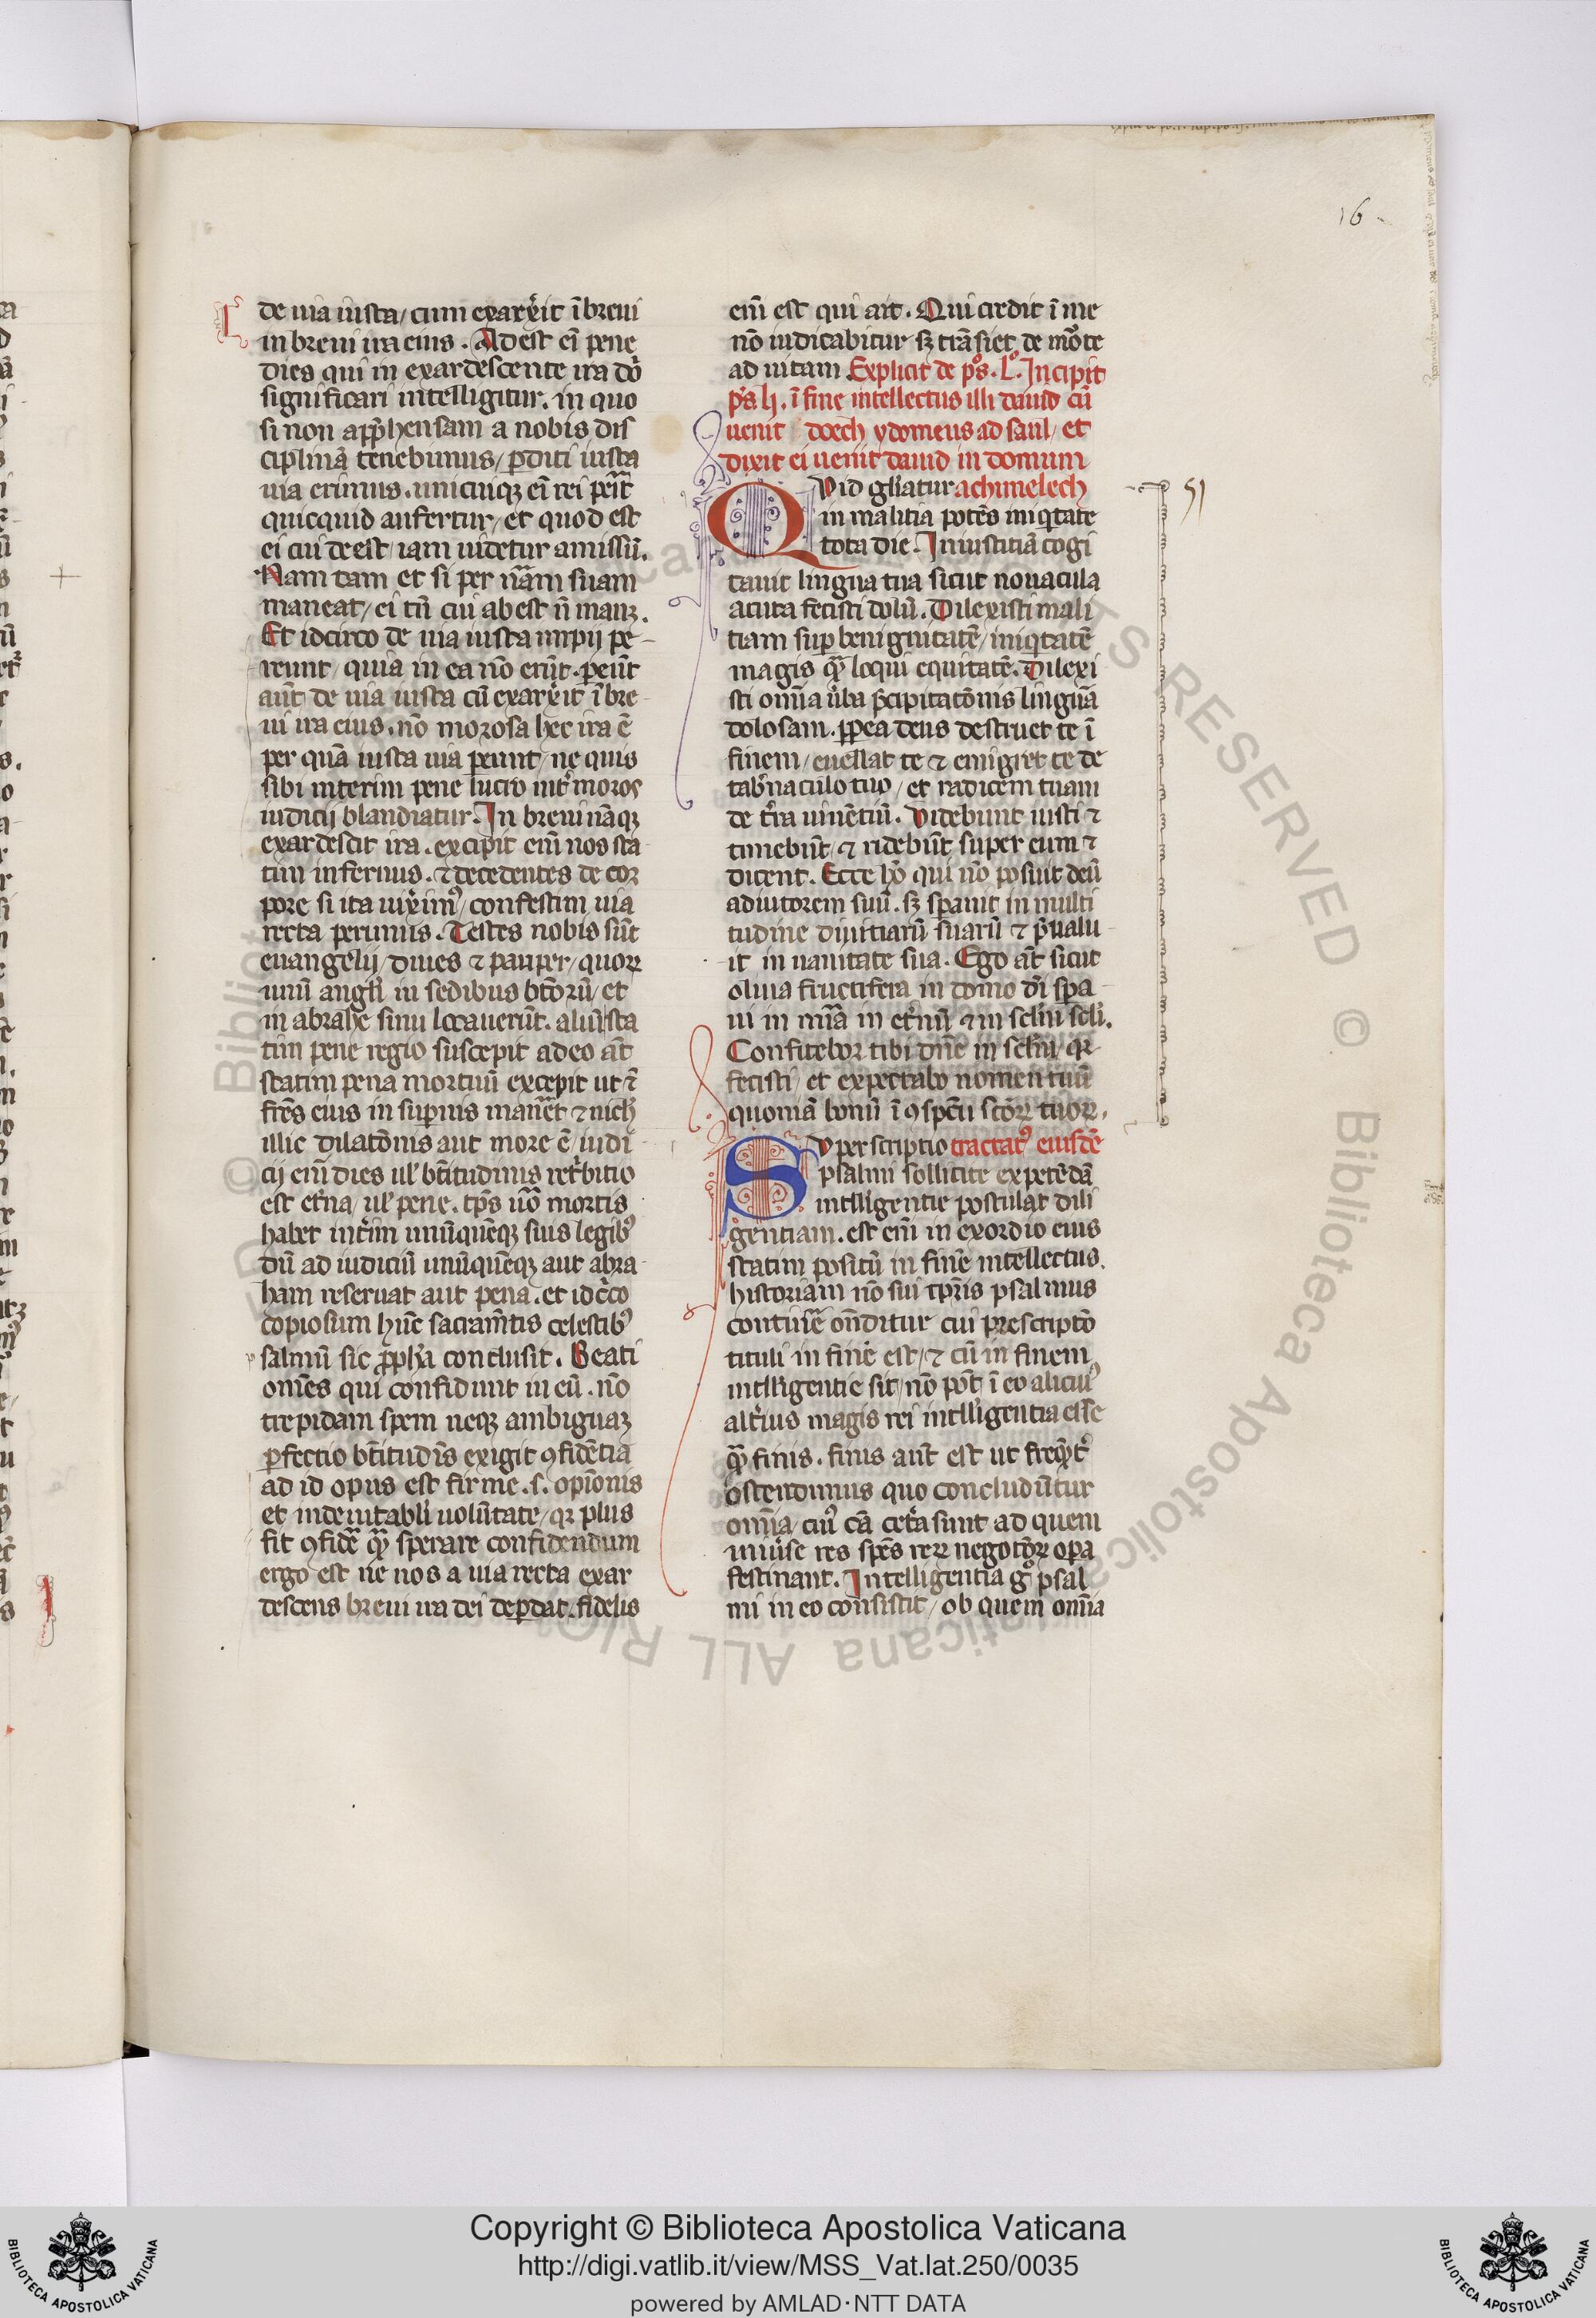 16
de uia iusta / cum exarẍit ĩ breui
in breui ira eius . Adest eī pene
dies qui in exardescente ira dō
significari intelligitur . in quo
si non app̄hensam a nobis dis
ciplinā tenebimus / ꝑditi iusta
uia erimus . unicuiqꝫ eī rei ꝑeīt
quicquid aufertur / et quod est
ei cui deest / iam uidetur amissū .
Nam tam et si per nāam suam
maneat / ei tn̄ cui abest n̄ manꝫ .
Et idcirco de uia iusta impij pe
reunt / quia in ea nō erūt . ꝑeūt
aūt de uia iusta cū exarẍit ĩ bre
ui ira eius . nō morosa hec ira ē
per quā iusta uia ꝑeunt / ne quis
sibi interim pene lucro int̾ moros
iudicij blandiatur . In breui nāqꝫ
exardescit ira . excipit eni᷑ nos sta
tim infernus . ⁊ decedentes de cor
pore si ita uix̾imꝰ / confestim uia
recta perimus . Testes nobis sūt
euangelij / diues ⁊ pauper / quoꝝ
unū angl̄i in sedibus bt̄orū / et
in abrahe sinu locauerūt . aliū sta
tim pene regio suscepit adeo aūt
statim pena mortuū excepit ut ⁊
frēs eius in suꝑnis manēt ⁊ nich̄
illic dilatōnis aut more ē / iudi
cij eni᷑ dies ul̾ bt̄itudinis ret̾butio
est et̾na / ul̾ pene . tp̄s uō mortis
habet int̾im unūquēqꝫ suis legibꝰ
dū ad iudiciū unūquēqꝫ aut abra
ham reseruat aut pena . et idc̾co
copiosum hūc sacramētis celestibꝰ
salmū sic ꝓph̄a conclusit . Beati
omēs qui confidunt in eū . nō
trepidam spem neqꝫ ambiguaꝫ
ꝑfectio bt̄itudīs exigit ꝯfidētia
ad id opus est firme . s . opīonis
et indemutabl̄i uolūtate / qꝛ plus
fit ꝯfidē̾ qͣ̄ sperare confidendum
ergo est ne nos a uia recta exar
descens breui ira dei deꝑdat . fidelis
eni᷑ est qui ait . Qui credit ĩ me
nō iudicabitur sꝫ trāsiet de mōte
ad uitam Explicit de pͦs . Lͦ . Incipit
pͦs lj . ĩ fine intellectus illi dauid cū
uenit doech ydomeus ad saul / et
dixit ei uenit dauid in domum
Qvid gl̾iatur achimelech
51
in malitia potēs iniqͥtate
tota die . Iniustitiā cogi
tauit lingua tua sicut nouacula
acuta fecisti dolū . Dilexisti mali
tiam suꝑ benignitatē / iniqͥtatē
magis qͣ̄ loqui equitatē . Dilexi
sti omīa ūba p̄cipitatōnis linguā
dolosam . ꝓpͤea deus destruet te ĩ
finem / euellat te ⁊ emigret te de
tab̾naculo tuo / et radicem tuam
de t̾ra uiuētiū . Videbunt iusti ⁊
timebūt / ⁊ ridebūt super eum ⁊
dicent . Ecce hō qui nō posuit deū
adiutorem suū . sꝫ sꝑauit in multi
tudine diuitiarū suarū ⁊ p̄ualu
it in uanitate sua . Ego aūt sicut
oliua fructifera in domo dī sꝑa
ui in mīa in et̾nū ⁊ in scl̄m scl̄i .
Confitebor tibi dn̄e in scl̄m / qꝛ
fecisti / et expectabo nomen tuū
quoniā bonū ĩ ꝯspc̄tu sc̄oꝝ tuoꝝ .
Sꝟperscriptio tractatꝰ eiusdē
psalmi sollicite expetēdā
intelligentie postulat dili
gentiam . est eni᷑ in exordio eius
statim positū in finē intellectus .
historiam nō sui tp̄ris psalmus
continē̾ ondītur cui prescriptō
tituli in finē est / ⁊ cū in finem
intelligentie sit / nō pōt ĩ eo alicuiꝰ
alt̾ius magis rei intelligentia esse
qͣ̄ finis . finis aūt est ut freqͣ̄t̾
ostendimus quo concludūtur
omīa / cuiꝰ cā cet̾a sunt ad quem
uniūse res spēs reꝝ negotōꝝ oꝑa
festinant . Intelligentia gͦ psal
mi in eo consistit / ob quem omīa
© Biblioteca Apostolica Vaticana ALL RIGHTS RESERVED
Copyright © Biblioteca Apostolica Vaticana
http://digi.vatlib.it/view/MSS_Vat.lat.250/0035
powered by AMLAD·NTT DATA
BIBLIOTECA APOSTOLICA VATICANA
BIBLIOTECA APOSTOLICA VATICANA